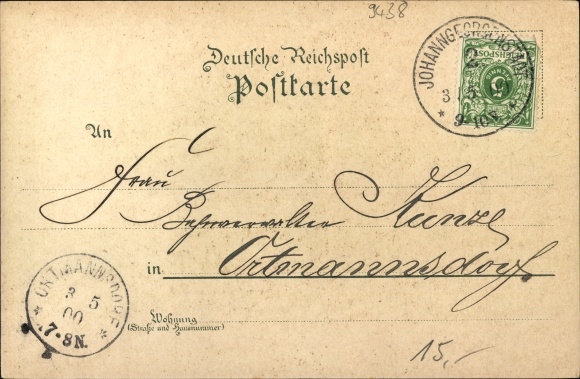 9438
Deutsche Reichspost
Postkarte
JOHANNGEORGENSTADT
3 5
9-10V.
REICHSPOST
5
An
Frau
Bahnverwalter Kunze
in Ortmannsdorf.
Wohnung
(Straße und Hausnummer)
ORTMANNSDORF
3 5
00
7-8N.
15,-